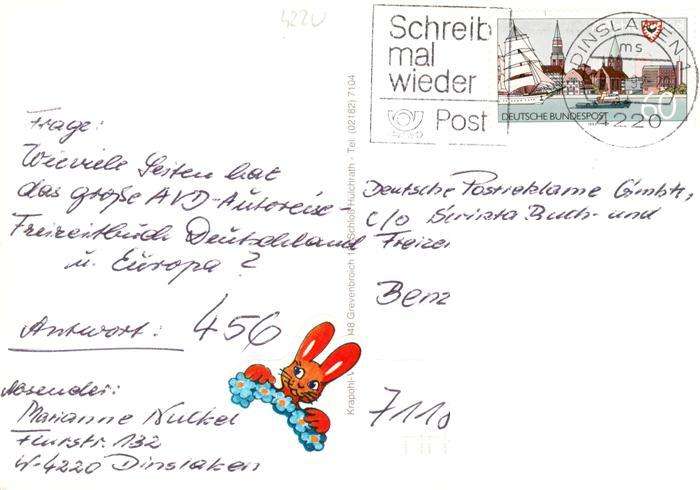 422U
Schreib
mal
wieder
Post
DINSLAKEN
ms
4220
DEUTSCHE BUNDESPOST
60
Frage:
Wieviele Seiten hat
das große AVD-Autoreise-
Freizeitbuch Deutschland
u. Europa?
Antwort: 456
Absender:
Marianne Nukel
Flurstr. 132
W-4220 Dinslaken
Krapohl-V
048 Grevenbroich 1 Schloß Hülchrath - Tel. (02182) 7104
Deutsche Postreklame GmbH,
c/o Scripta Buch- und
Freizei
Benz
711